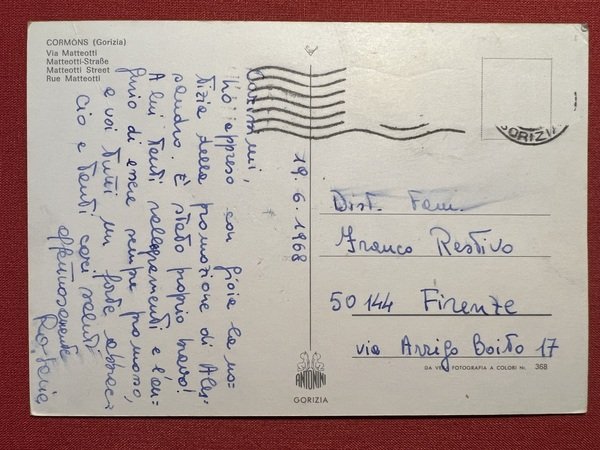 CORMONS (Gorizia)
Via Matteotti
Matteotti-Straße
Matteotti Street
Rue Matteotti
19.6.1968
Carissimi,
ho appreso con gioia la no-
tizia della promozione di Ales-
sandro. È stato proprio bravo!
A lui tanti rallegramenti e l'au-
gurio di essere sempre promosso,
a voi tutti un forte abbrac
cio e tanti cari saluti
affettuosamente
Dist. Fam.
Franco Restivo
50144 Firenze
via Arrigo Boito 17
GORIZIA
ANTONINI
GORIZIA
DA VERA FOTOGRAFIA A COLORI Nr. 368